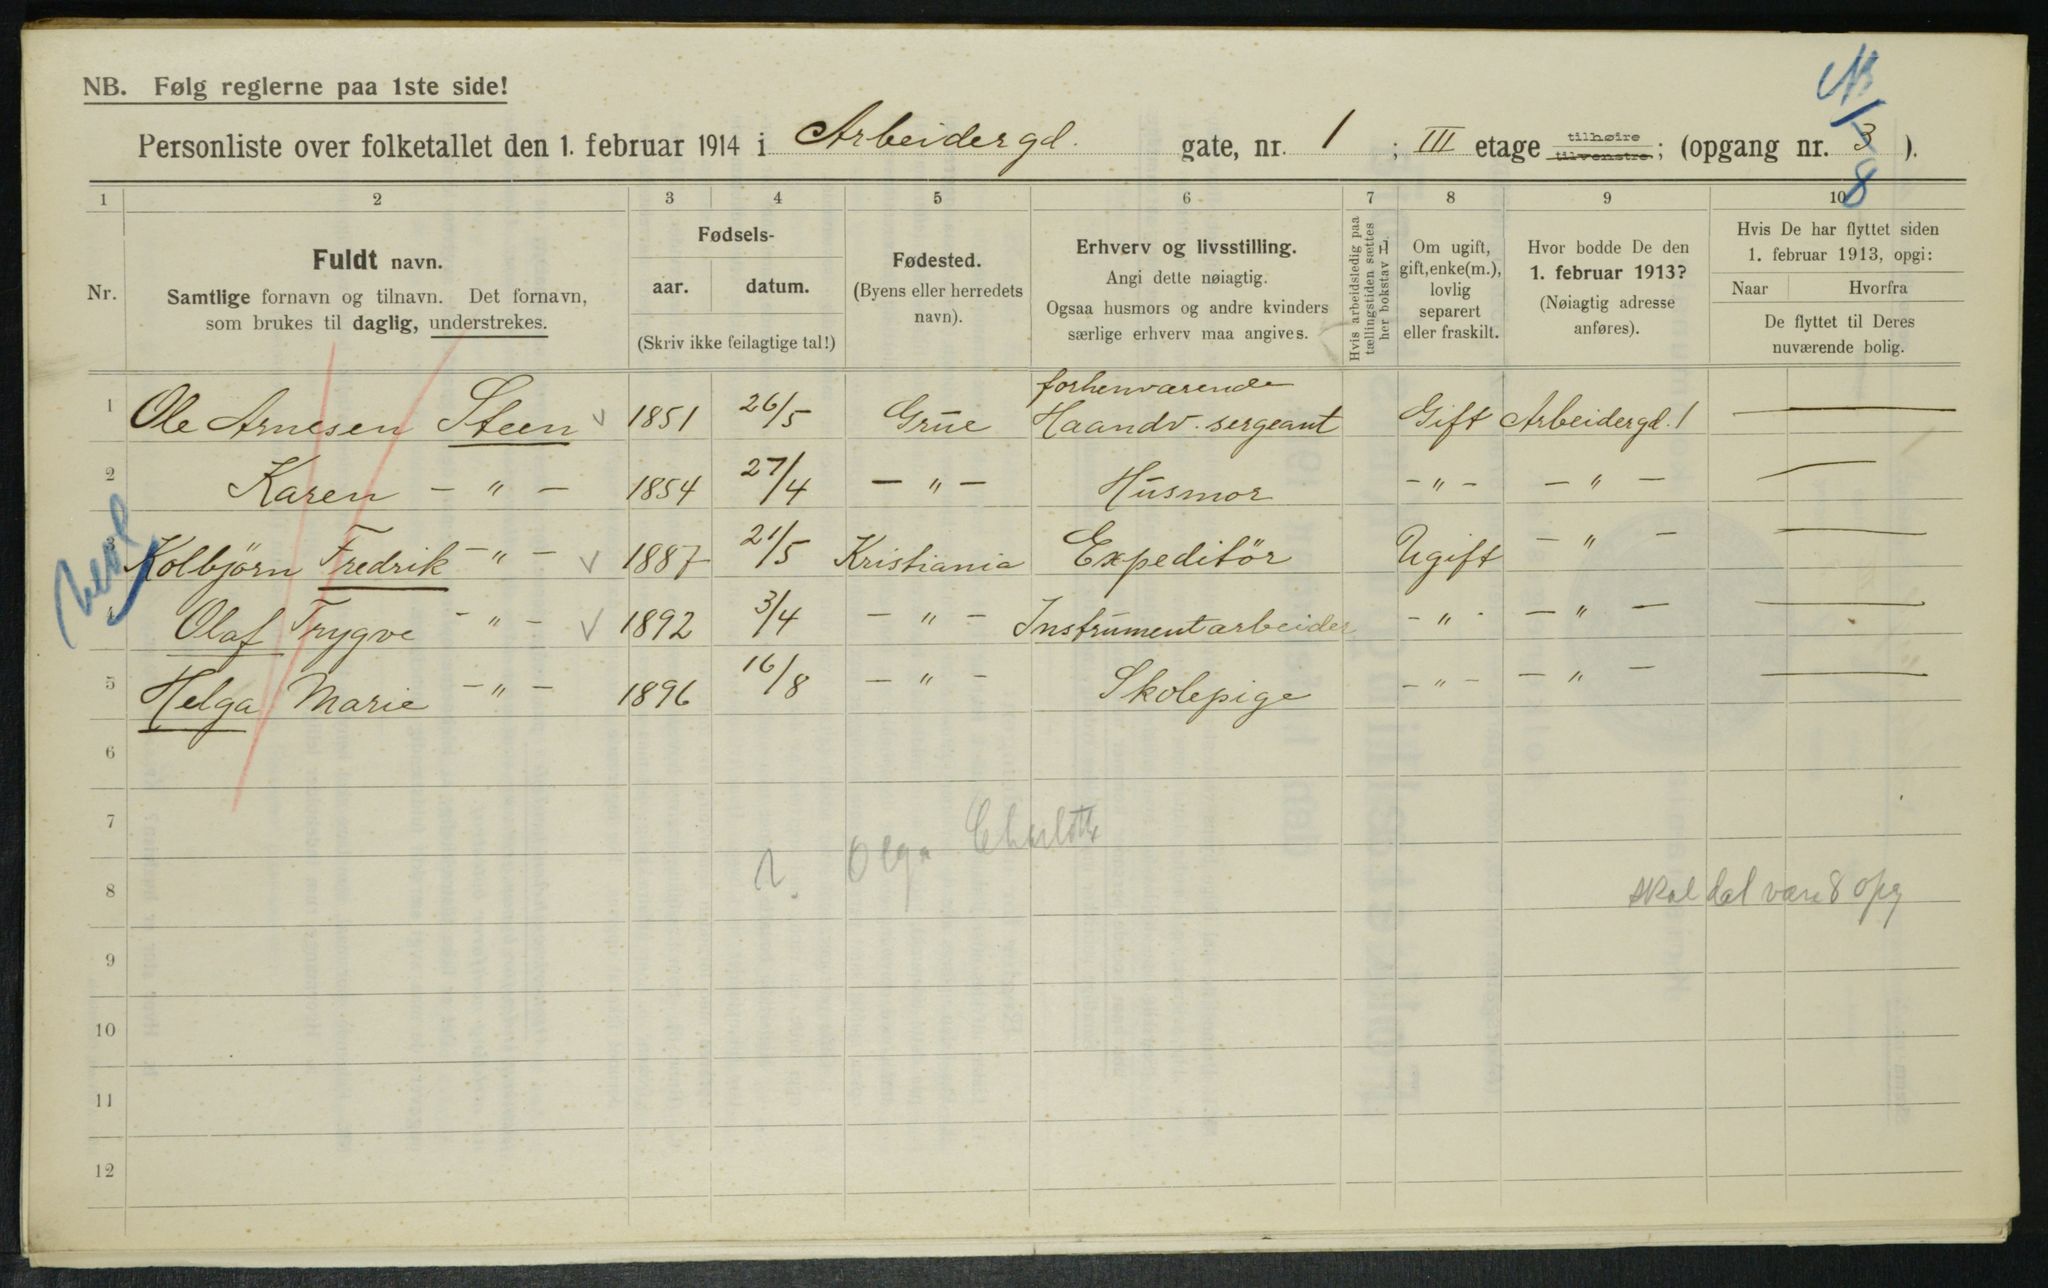 NB. Følg reglerne paa 1ste side!
Personliste over folketallet den 1. februar 1914 i Arbeidergd. gate, nr. 1 ; III etage tilhøire tilvenstre; (opgang nr. 3 ).
8
1 2 3 4 5 6 7 8 9 10
Nr.
Fuldt navn.
Samtlige fornavn og tilnavn. Det fornavn,
som brukes til daglig, understrekes.
Fødsels-
aar. datum.
(Skriv ikke feilagtige tal!)
Fødested.
(Byens eller herredets
navn).
Erhverv og livsstilling.
Angi dette nøiagtig.
Ogsaa husmors og andre kvinders
særlige erhverv maa angives.
Hvis arbeidsledig paa
tællingstiden sættes
her bokstav L
Om ugift,
gift, enke(m.),
lovlig
separert
eller fraskilt.
Hvor bodde De den
1. februar 1913?
(Nøiagtig adresse
anføres).
Hvis De har flyttet siden
1. februar 1913, opgi:
Naar Hvorfra
De flyttet til Deres
nuværende bolig.
1 Ole Arnesen Steen 1851 26/5 Grue forhenværende
Haandv. sergeant Gift Arbeidergd. 1 —
2 Karen - " - 1854 27/4 - " - Husmor - " - - " - —
3 Kolbjørn Fredrik - " - 1887 21/5 Kristiania Expeditør Ugift - " - —
4 Olaf Trygve - " - 1892 3/4 - " - Instrumentarbeider - " - - " - —
5 Helga Marie - " - 1896 16/8 - " - Skolepige - " - - " - —
6
7
Olga Charlotte
8
skal det være 8 opg
9
10
11
12